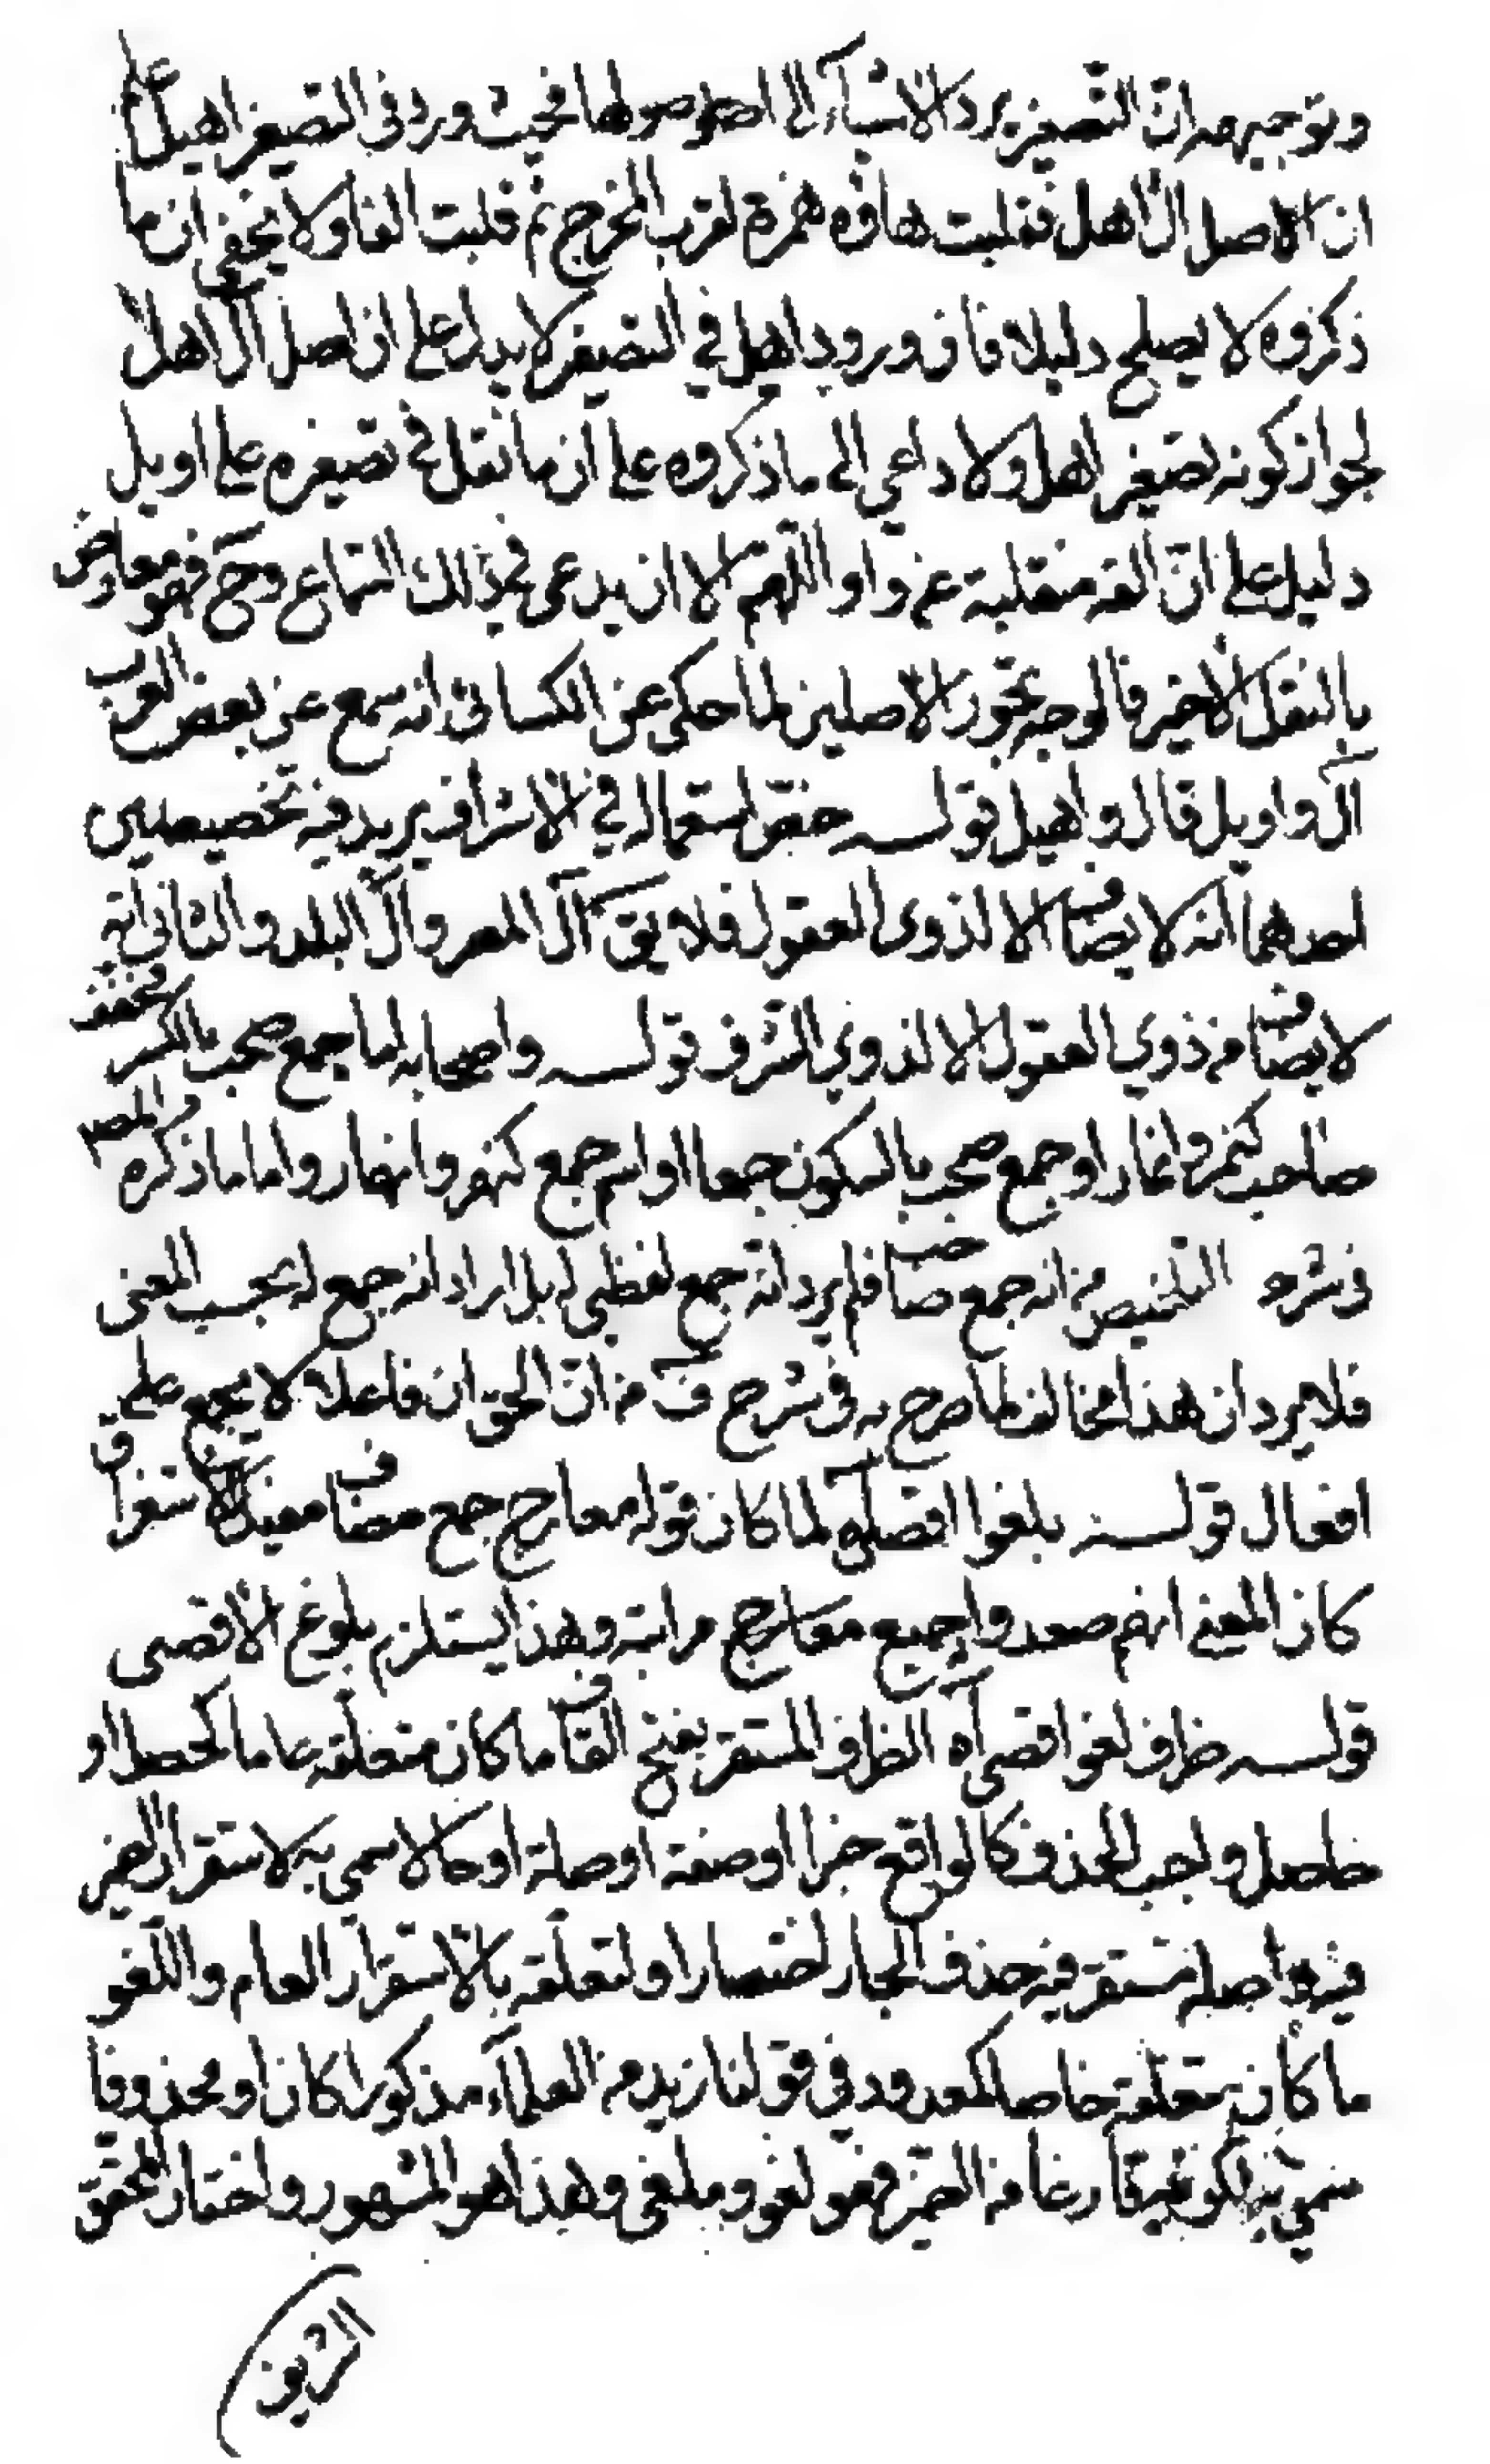 وتوجيهه ان التصغير يرد الاشياء الى اصولها فحيث ورد في التصغير اهيل علم
ان الاصل آل اهل فقلبت هاؤه همزة لقرب المخرج ثم قلبت الفا ولا يخفى ان ما
ذكروه لا يصلح دليلا فان ورود اهيل في التصغير لا يدل على ان اصل آل اهل
لجواز كونه تصغير اهل ولا داعي الى ما ذكروه على ان ما نقل في تصغيره على اويل
دليل على ان الفه منقلبة عن واو اللهم الا ان يدعى في ذلك السماع وح فهو معارض
بالنقل الاخير فالوجه تجوز الاصلين لما حكى عن الكسائي انه سمع عن بعض العرب
آل واويل قال واهيل قولـه خص استعماله في الاشراف يريد فيه تخصيصين
احدهما انه لا يضاف الا لذوي العقول فلا يق آل المصر وآل البلد والثاني انه
لا يضاف من ذوي العقول الا لذوي الشرف قولـه واصحابه اما جمع صحب بالكسر مخفف
صاحب كنمر وانمار او جمع صحب بالسكون جمعا او اسم جمع كنهر وانهار واما ما ذكره المص
في شرح التلخيص من انه جمع صاحب فلم يرد انه جمع لفظي له بل اراد انه جمع له بحسب المعنى
فلا يرد ان هذا مخالف لما صرح به في شرح ف من ان الحق ان فاعلا لا يجمع على
افعال قولـه بلغوا اقصاه لما كان قوله معارج جمع مضاف مفيد الاستغراق
كان المعنى انهم صعدوا جميع معارج مراتبه وهذا يستلزم بلوغ الاقصى
قولـه ظرف لغو اقصى آه الظرف المستقر بفتح القاف ما كان متعلقه عاما كحصل او
حاصل واجب الحذف كالواقع خبرا او صفة او صلة او حالا سمي به لاستقرار الضمير
فيه واصله مستقر فيه حذف الجار اختصارا او لتعلقه بالاستقرار العام واللغو
ما كان متعلقه خاصا كمعدود في قولنا زيد من العلماء مذكورا كان او محذوفا
سمي به لكونه فارغا من الضمير فهو لغو وملغى وهذا هو المشهور واختار المحقق
الشريف